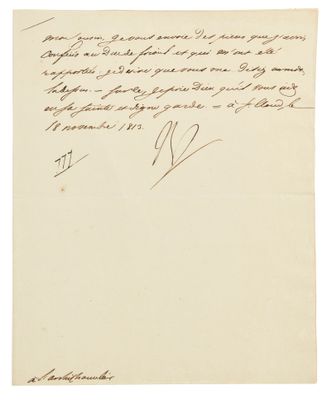 mon cousin, je vous envoie des pieces que j'avois
confiées au Duc de et qui m'ont été
rapportées. je desire que vous me disiez
sur ce, je prie Dieu qu'il vous ait
en sa sainte et digne garde = à St Cloud, le
18 novembre 1813.
777
à l'archichancelier